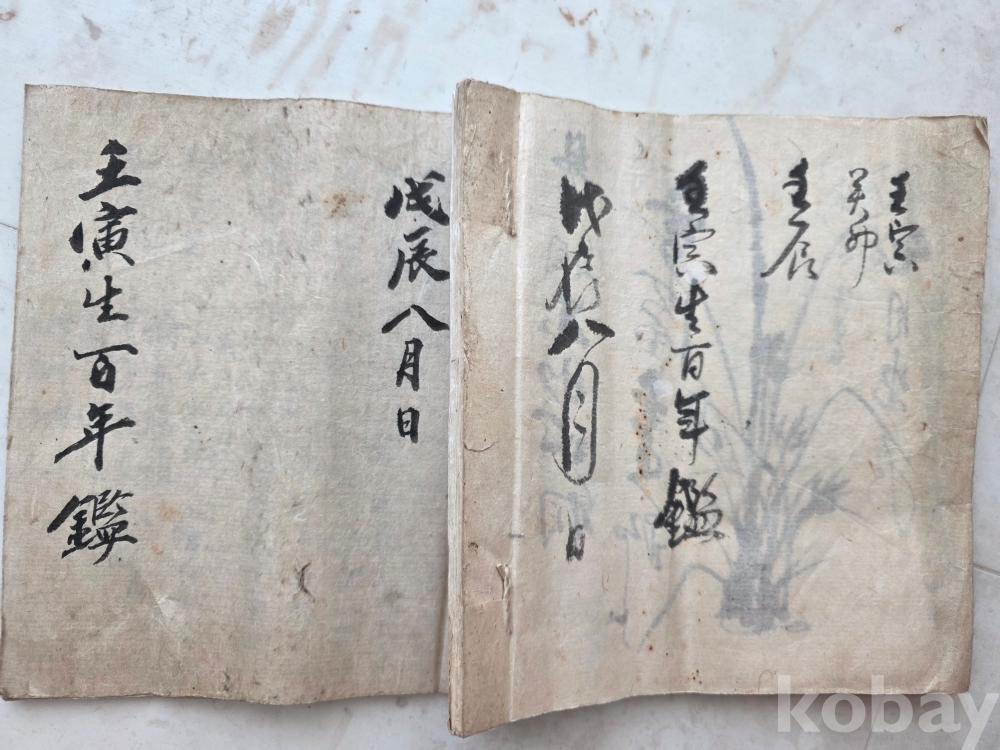 壬寅
癸卯
壬辰
壬寅生百年鑑
戊辰八月日
戊辰八月日
壬寅生百年鑑
kobay